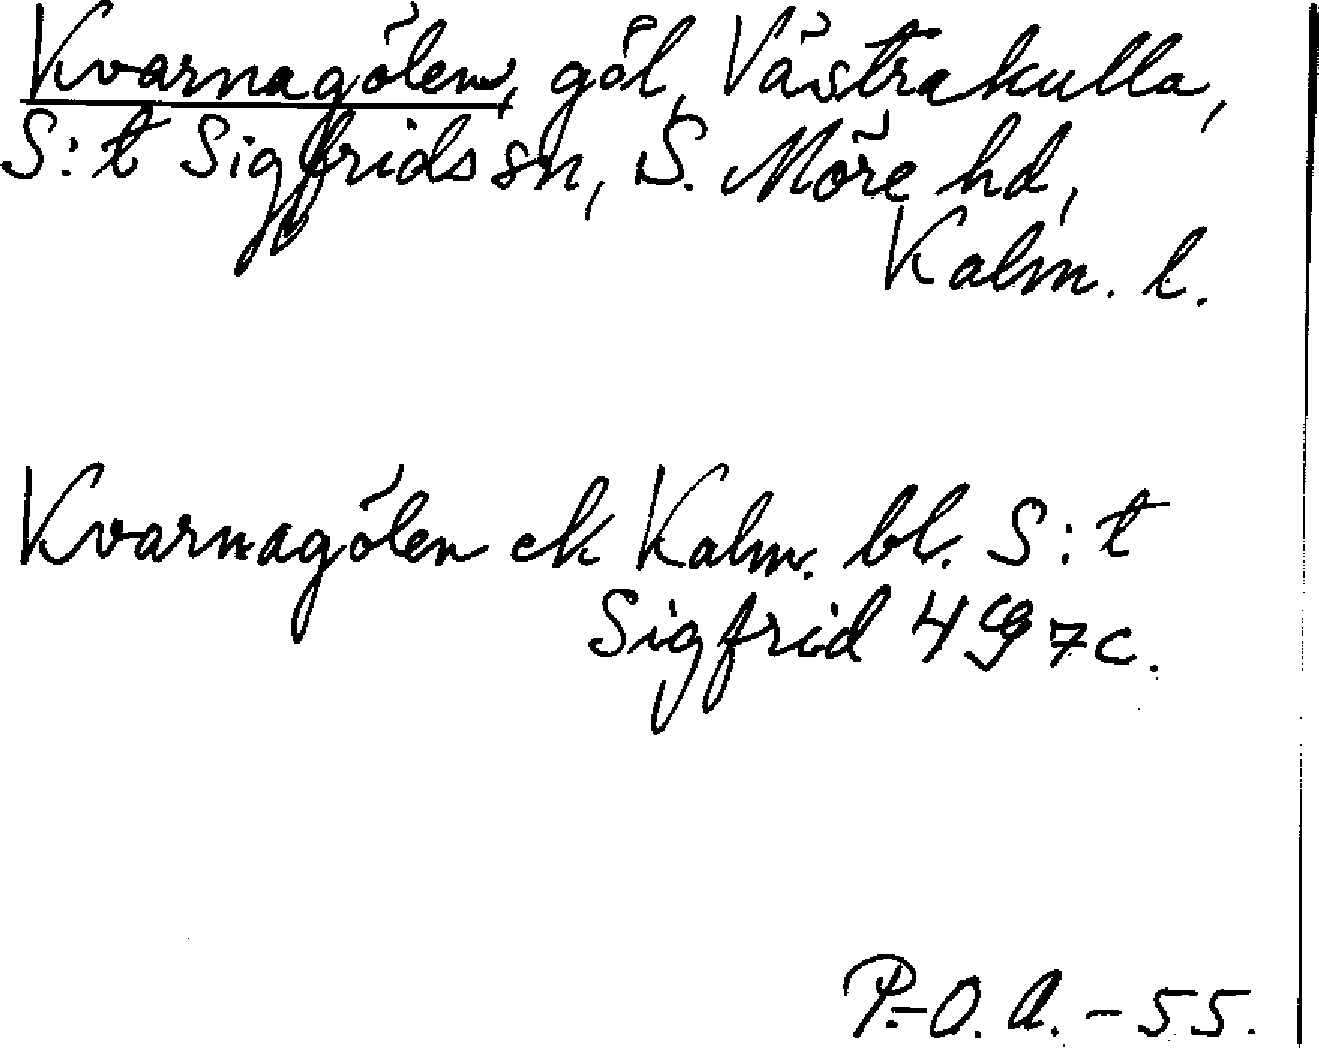 Kvarnagölen, göl, Västrakulla,
S:t Sigfrids sn, S. Möre hd,
Kalm. l.
Kvarnagölen ek Kalm. bl. S:t
Sigfrid 4 9 7 c.
P.-O. A. - 55.